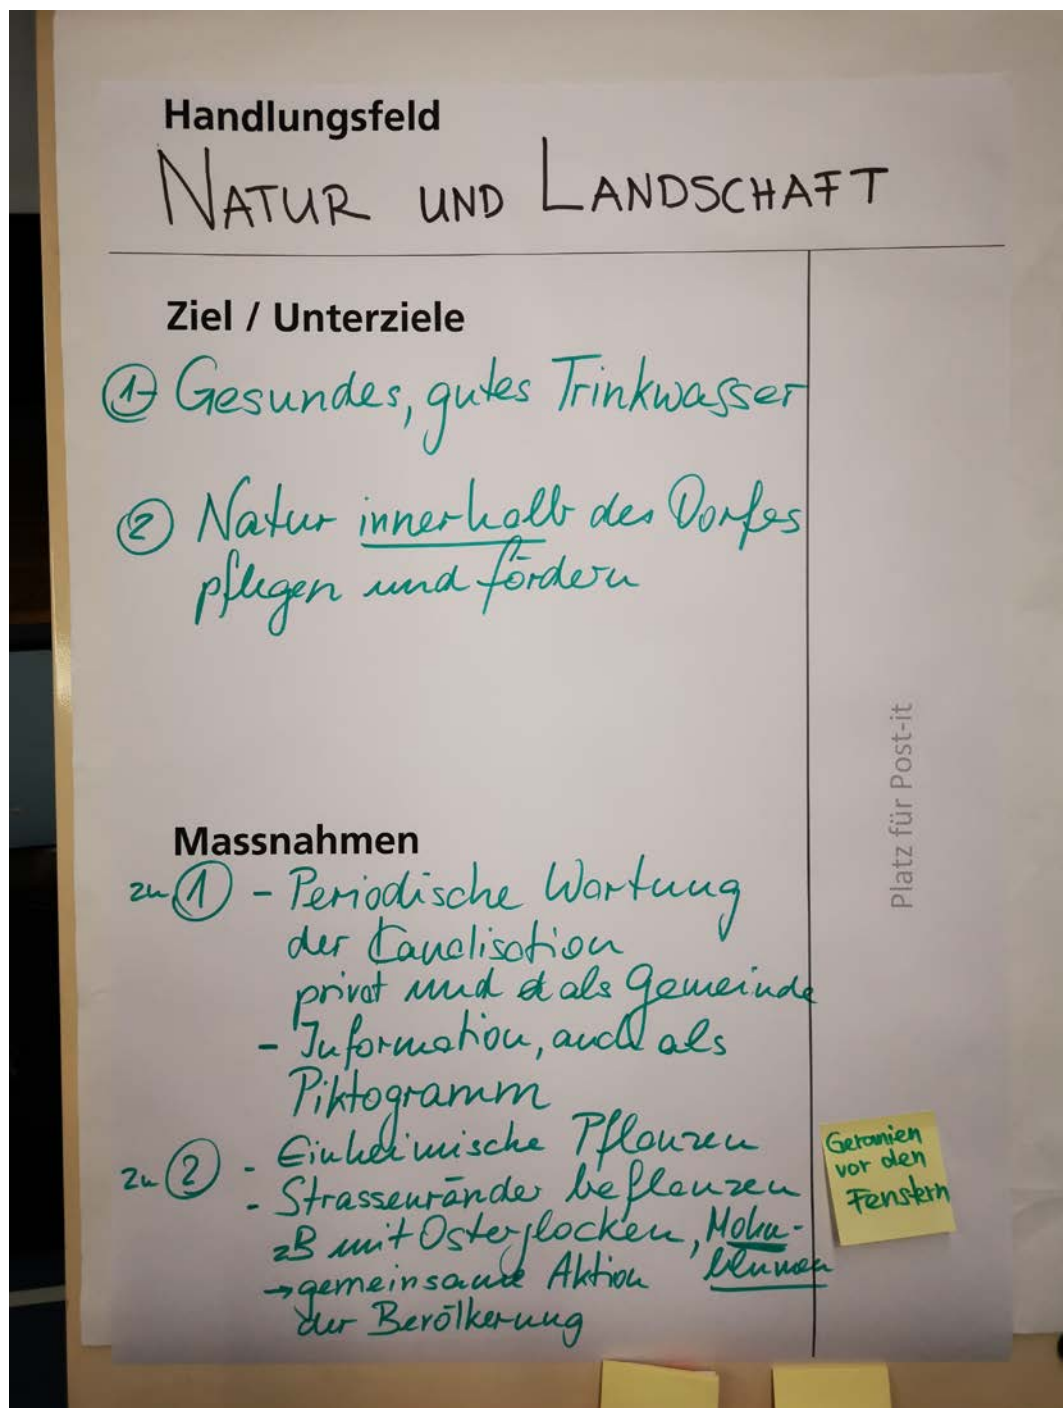 Handlungsfeld
NATUR UND LANDSCHAFT
Ziel / Unterziele
1 Gesundes, gutes Trinkwasser
2 Natur innerhalb des Dorfes
pflegen und fördern
Massnahmen
zu 1 - Periodische Wartung
der Kanalisation
privat und als Gemeinde
- Information, auch als
Piktogramm
zu 2 - Einheimische Pflanzen
- Strassenränder beflanzen
zB mit Osterglocken, Mohn-
blumen
→ gemeinsame Aktion
der Bevölkerung
Platz für Post-it
Geranien
vor den
Fenstern